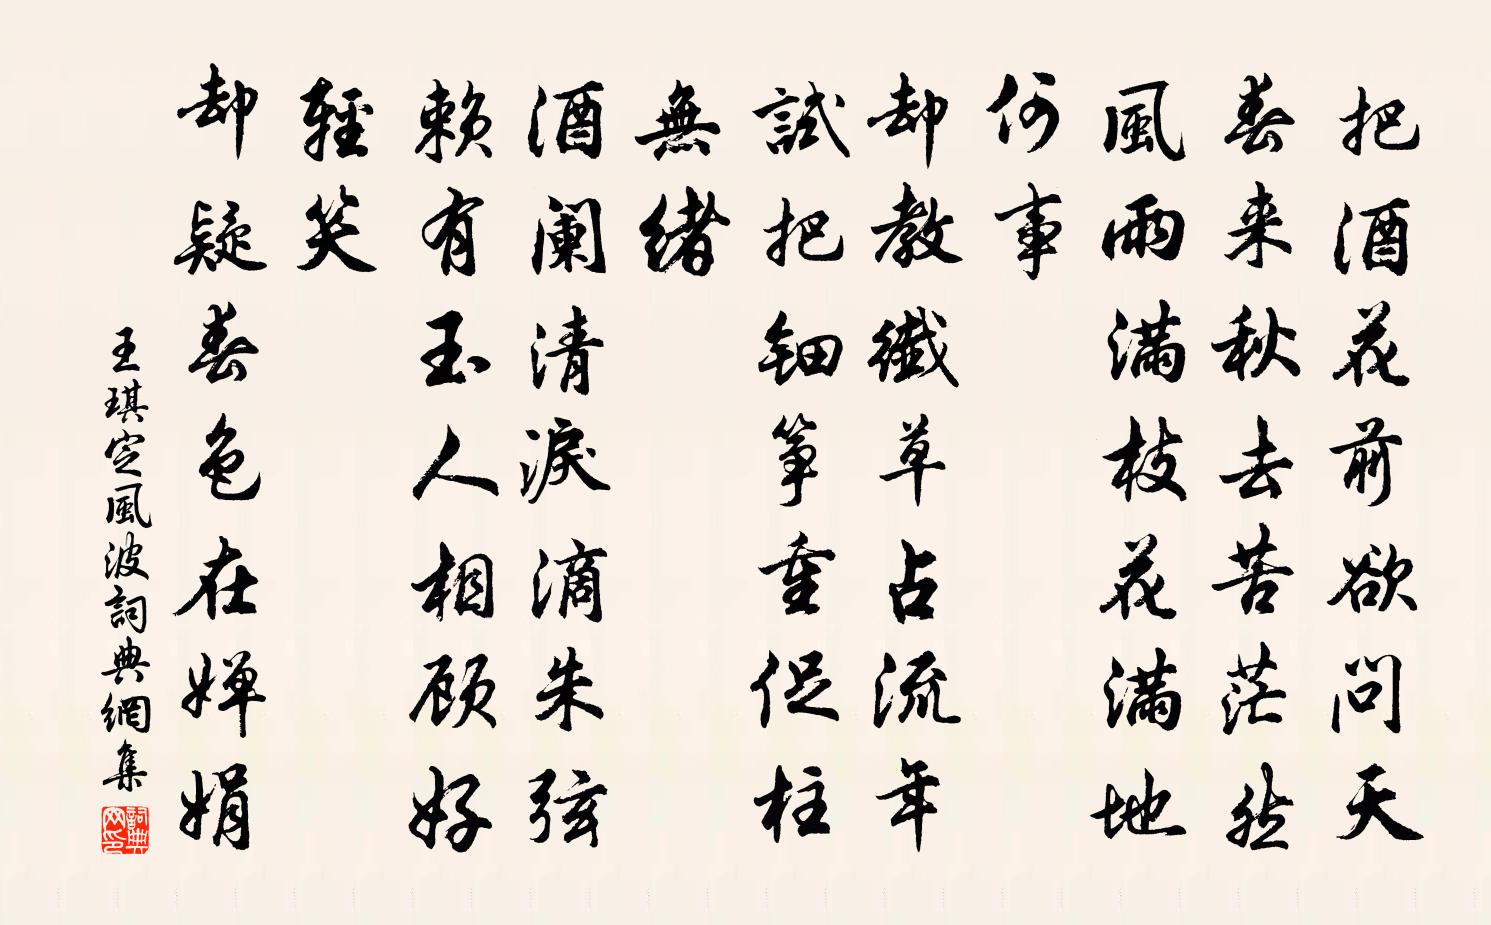 把酒花前欲问天
春来秋去苦茫然
風雨满枝花满地
何事
却教纖草占流年
試把钿筝重促柱
無緒
酒阑清淚滴朱弦
赖有玉人相顾好
輕笑
却疑春色在婵娟
王琪定風波詞典網集
詞典
网印